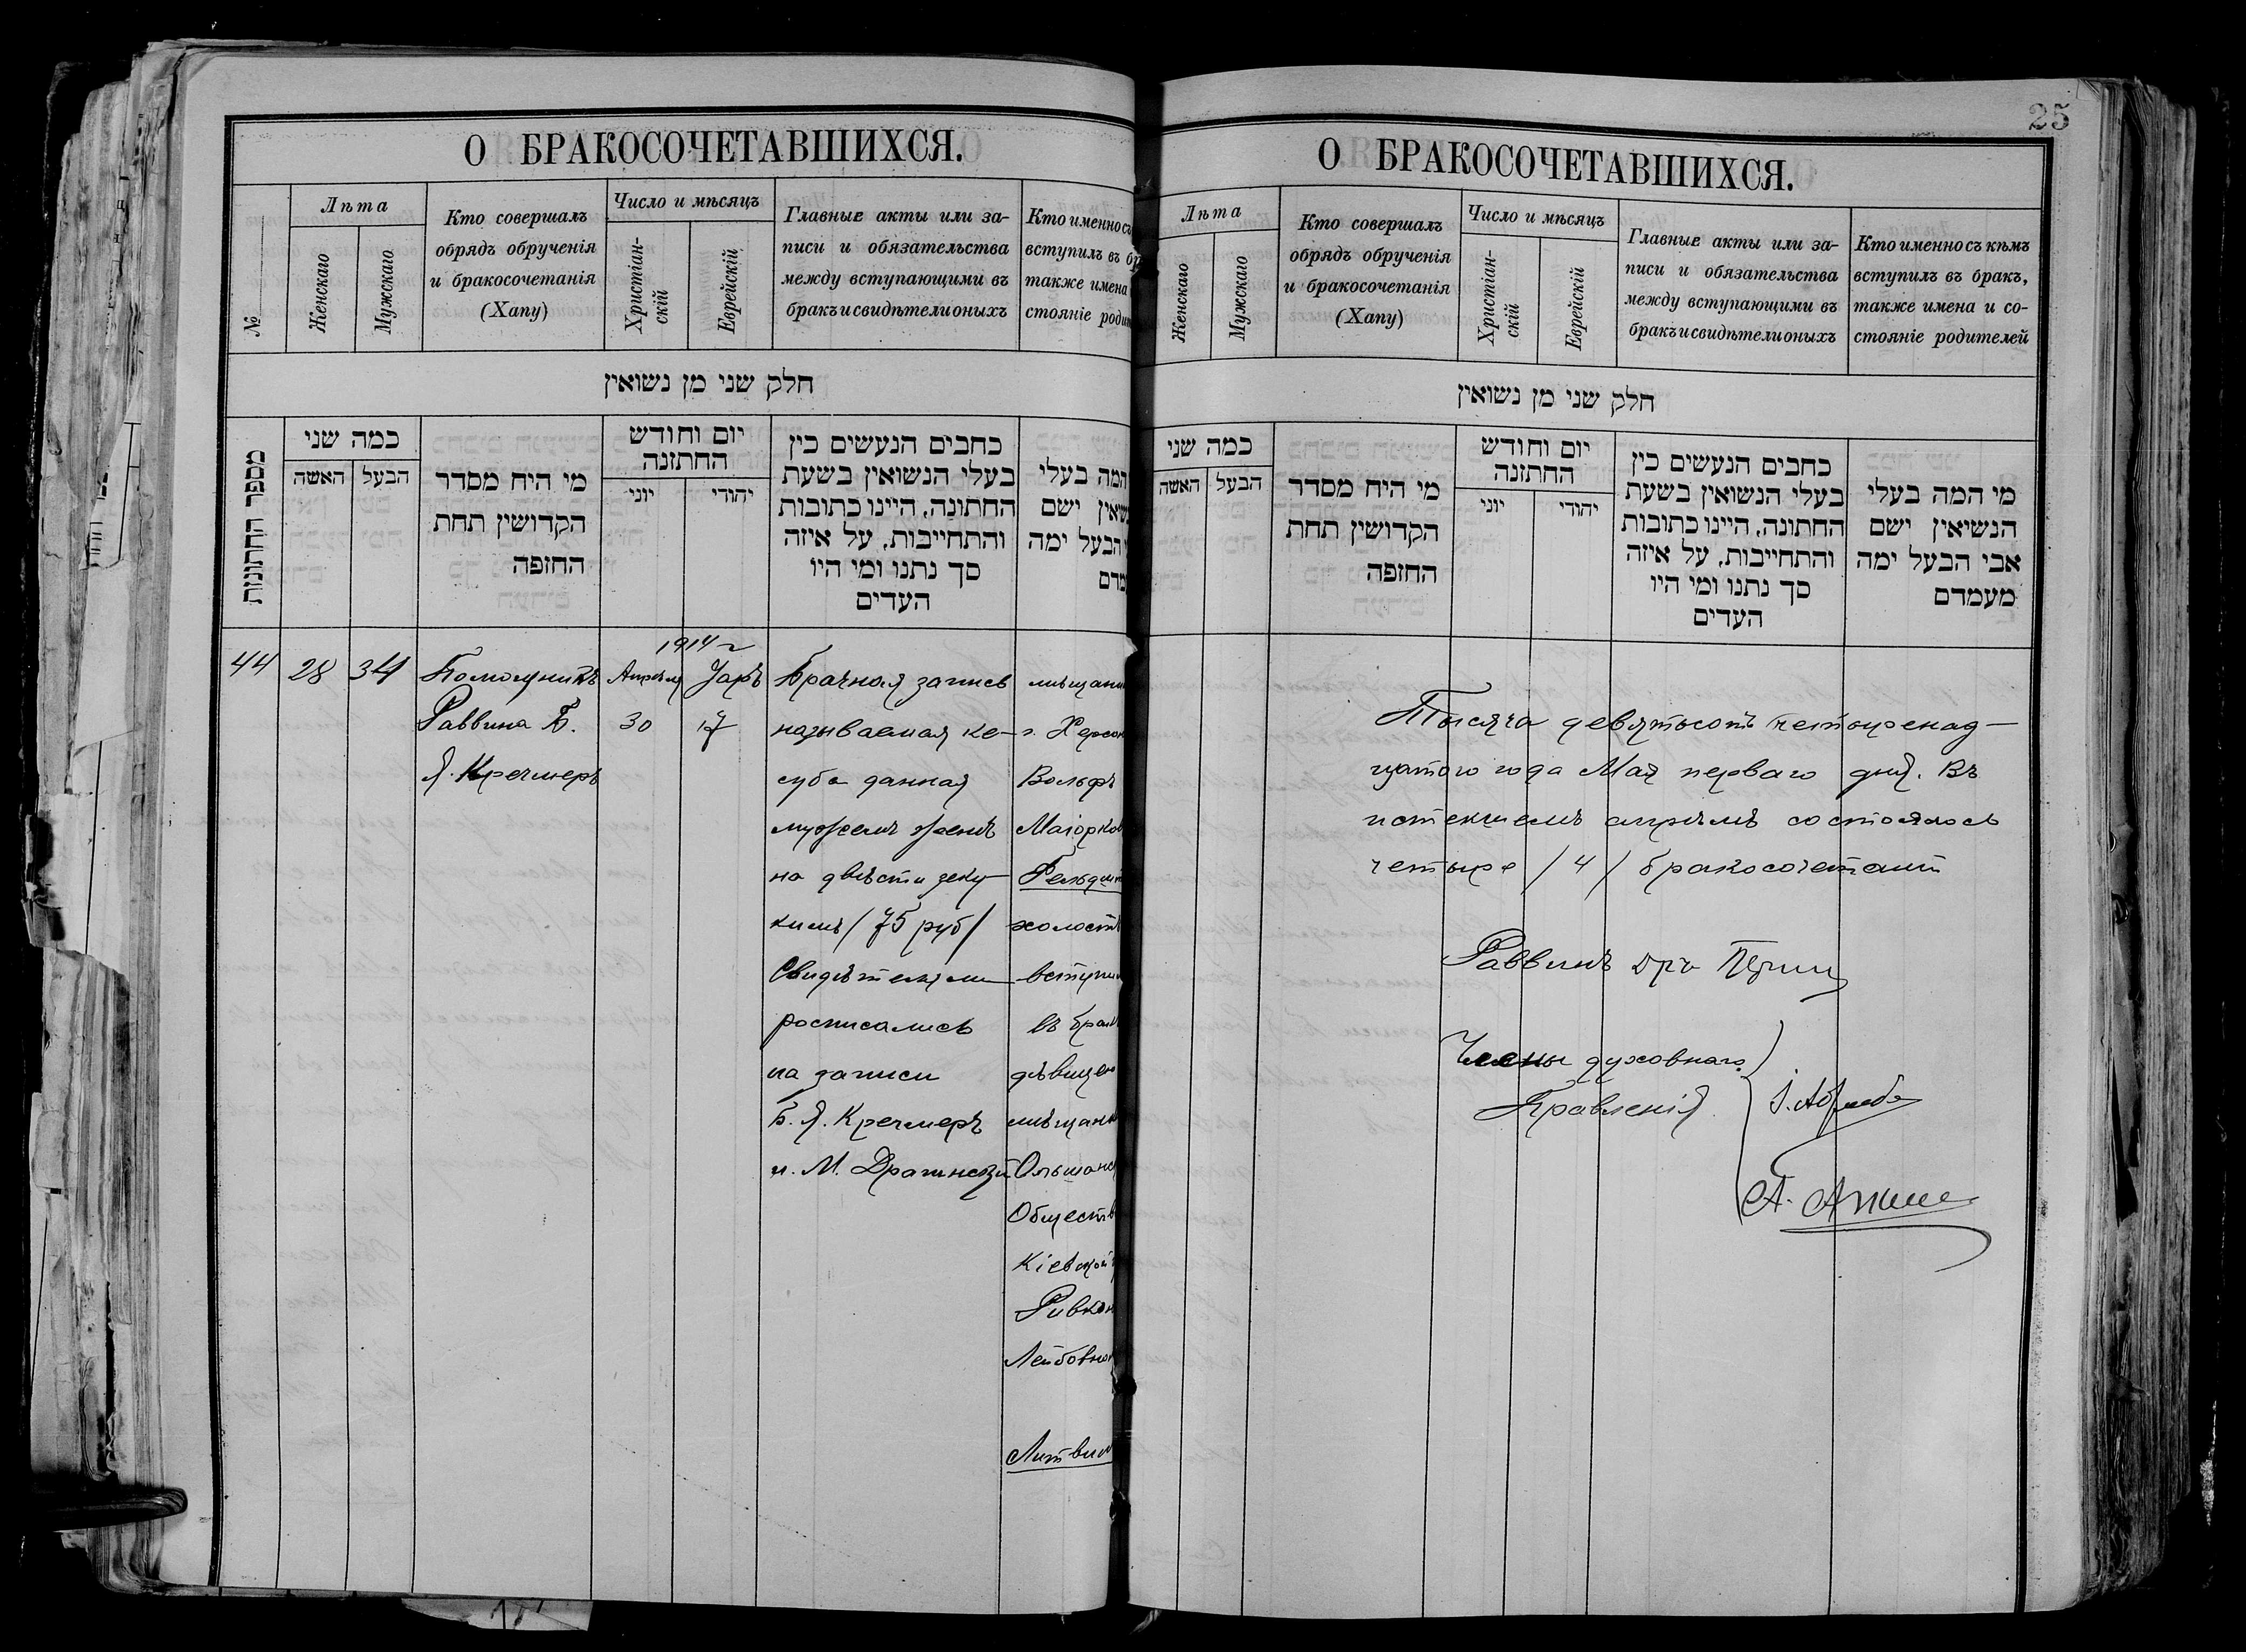 О БРАКОСОЧЕТАВШИХСЯ.
№
Лѣта
Женскаго
Мужскаго
Кто совершалъ
обрядъ обрученія
и бракосочетанія
(Хапу)
Число и мѣсяцъ
Христіан-
скій
Еврейскій
Главные акты или за-
писи и обязательства
между вступающими въ
бракъ и свидѣтели оныхъ
Кто именно съ
вступилъ въ бр
также имена
стояніе родит
חלק שני מן נשואין
מספר החתונות
כמה שני
האשה
הבעל
מי היח מסדר
הקדושין תחת
החזפה
יום וחודש
החתזנה
יוני
יהודי
כחבים הנעשים כין
בעלי הנשואין בשעת
החתונה, היינו כתובות
והתחייבות, על איזה
סך נתנו ומי היו
העדים
המה בעלי
שיאין ישם
הבעל ימה
מדם
1914 г
44
28
34
Помощникъ
Раввина Б.
Я. Кречмеръ
Апрѣля
30
Іяръ
17
Брачная запись
называемая ке-
суба данная
мужемъ женѣ
на двѣсти зеку-
кимъ / 75 руб /
Свидѣтелями
росписались
на записи
Б. Я. Кречмеръ
и М. Драгинскій
мѣщани
г. Херсон
Вольфъ
Маіорков
Гельдшт
холостъ
вступил
въ бракъ
дѣвицею
мѣщанк
Ольшанс
Обществ
Кіевской
Ривкою
Лейбовно
Литвин
25
О БРАКОСОЧЕТАВШИХСЯ.
Лѣта
Женскаго
Мужскаго
Кто совершалъ
обрядъ обрученія
и бракосочетанія
(Хапу)
Число и мѣсяцъ
Христіан-
скій
Еврейскій
Главные акты или за-
писи и обязательства
между вступающими въ
бракъ и свидѣтели оныхъ
Кто именно съ кѣмъ
вступилъ въ бракъ,
также имена и со-
стояніе родителей
חלק שני מן נשואין
כמה שני
האשה
הבעל
מי היח מסדר
הקדושין תחת
החזפה
יום וחודש
החתזנה
יוני
יהודי
כחבים הנעשים כין
בעלי הנשואין בשעת
החתונה, היינו כתובות
והתחייבות, על איזה
סך נתנו ומי היו
העדים
מי המה בעלי
הנשיאין ישם
אבי הבעל ימה
מעמדם
Тысяча девятьсотъ четыренад-
цатого года Мая перваго дня. Въ
истекшемъ апрѣлѣ состоялось
четыре / 4 / бракосочетанія
Раввинъ Дръ
Члены духовнаго
Правленія